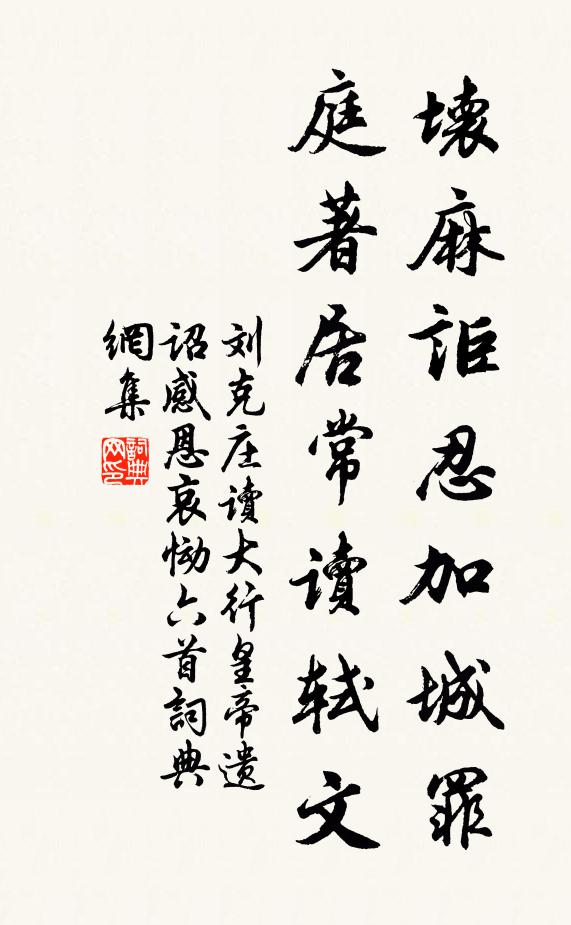 壞麻詎忍加城罪
庭著居常讀軾文
刘克庄讀大行皇帝遗
詔感恩哀恸六首詞典
網集
詞典
网印